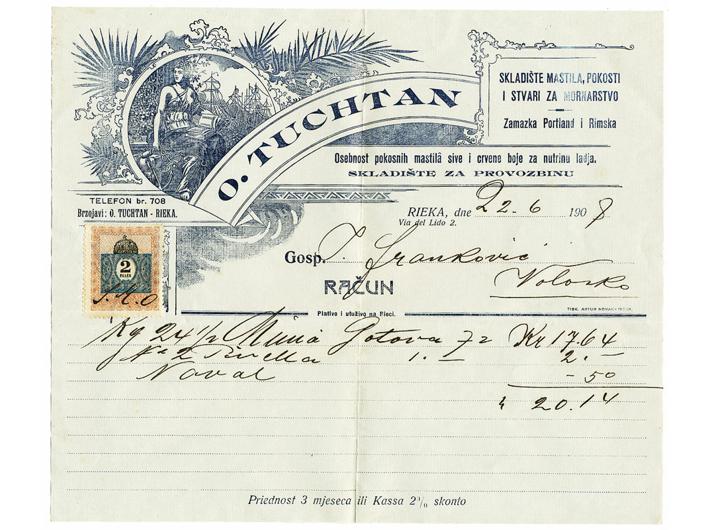 O. TUCHTAN
SKLADIŠTE MASTILA, POKOSTI
I STVARI ZA MORNARSTVO
Zamazka Portland i Rimska
Osebnost pokosnih mastilâ sive i crvene boje za nutrinu ladja.
SKLADIŠTE ZA PROVOZBINU
TELEFON br. 708
Brzojavi: O. TUCHTAN - RIEKA.
RIEKA, dne 22.6 1908
Via del Lido 2.
2
Gosp. Franković
Volosko
RAČUN
Plativo i utuživo na Rieci.
Kg 24 1/2 Gotova 72 Kr 17.64
No 2 1.— 2.—
Naval - 50
20.14
Priednost 3 mjeseca ili Kassa 2% skonto